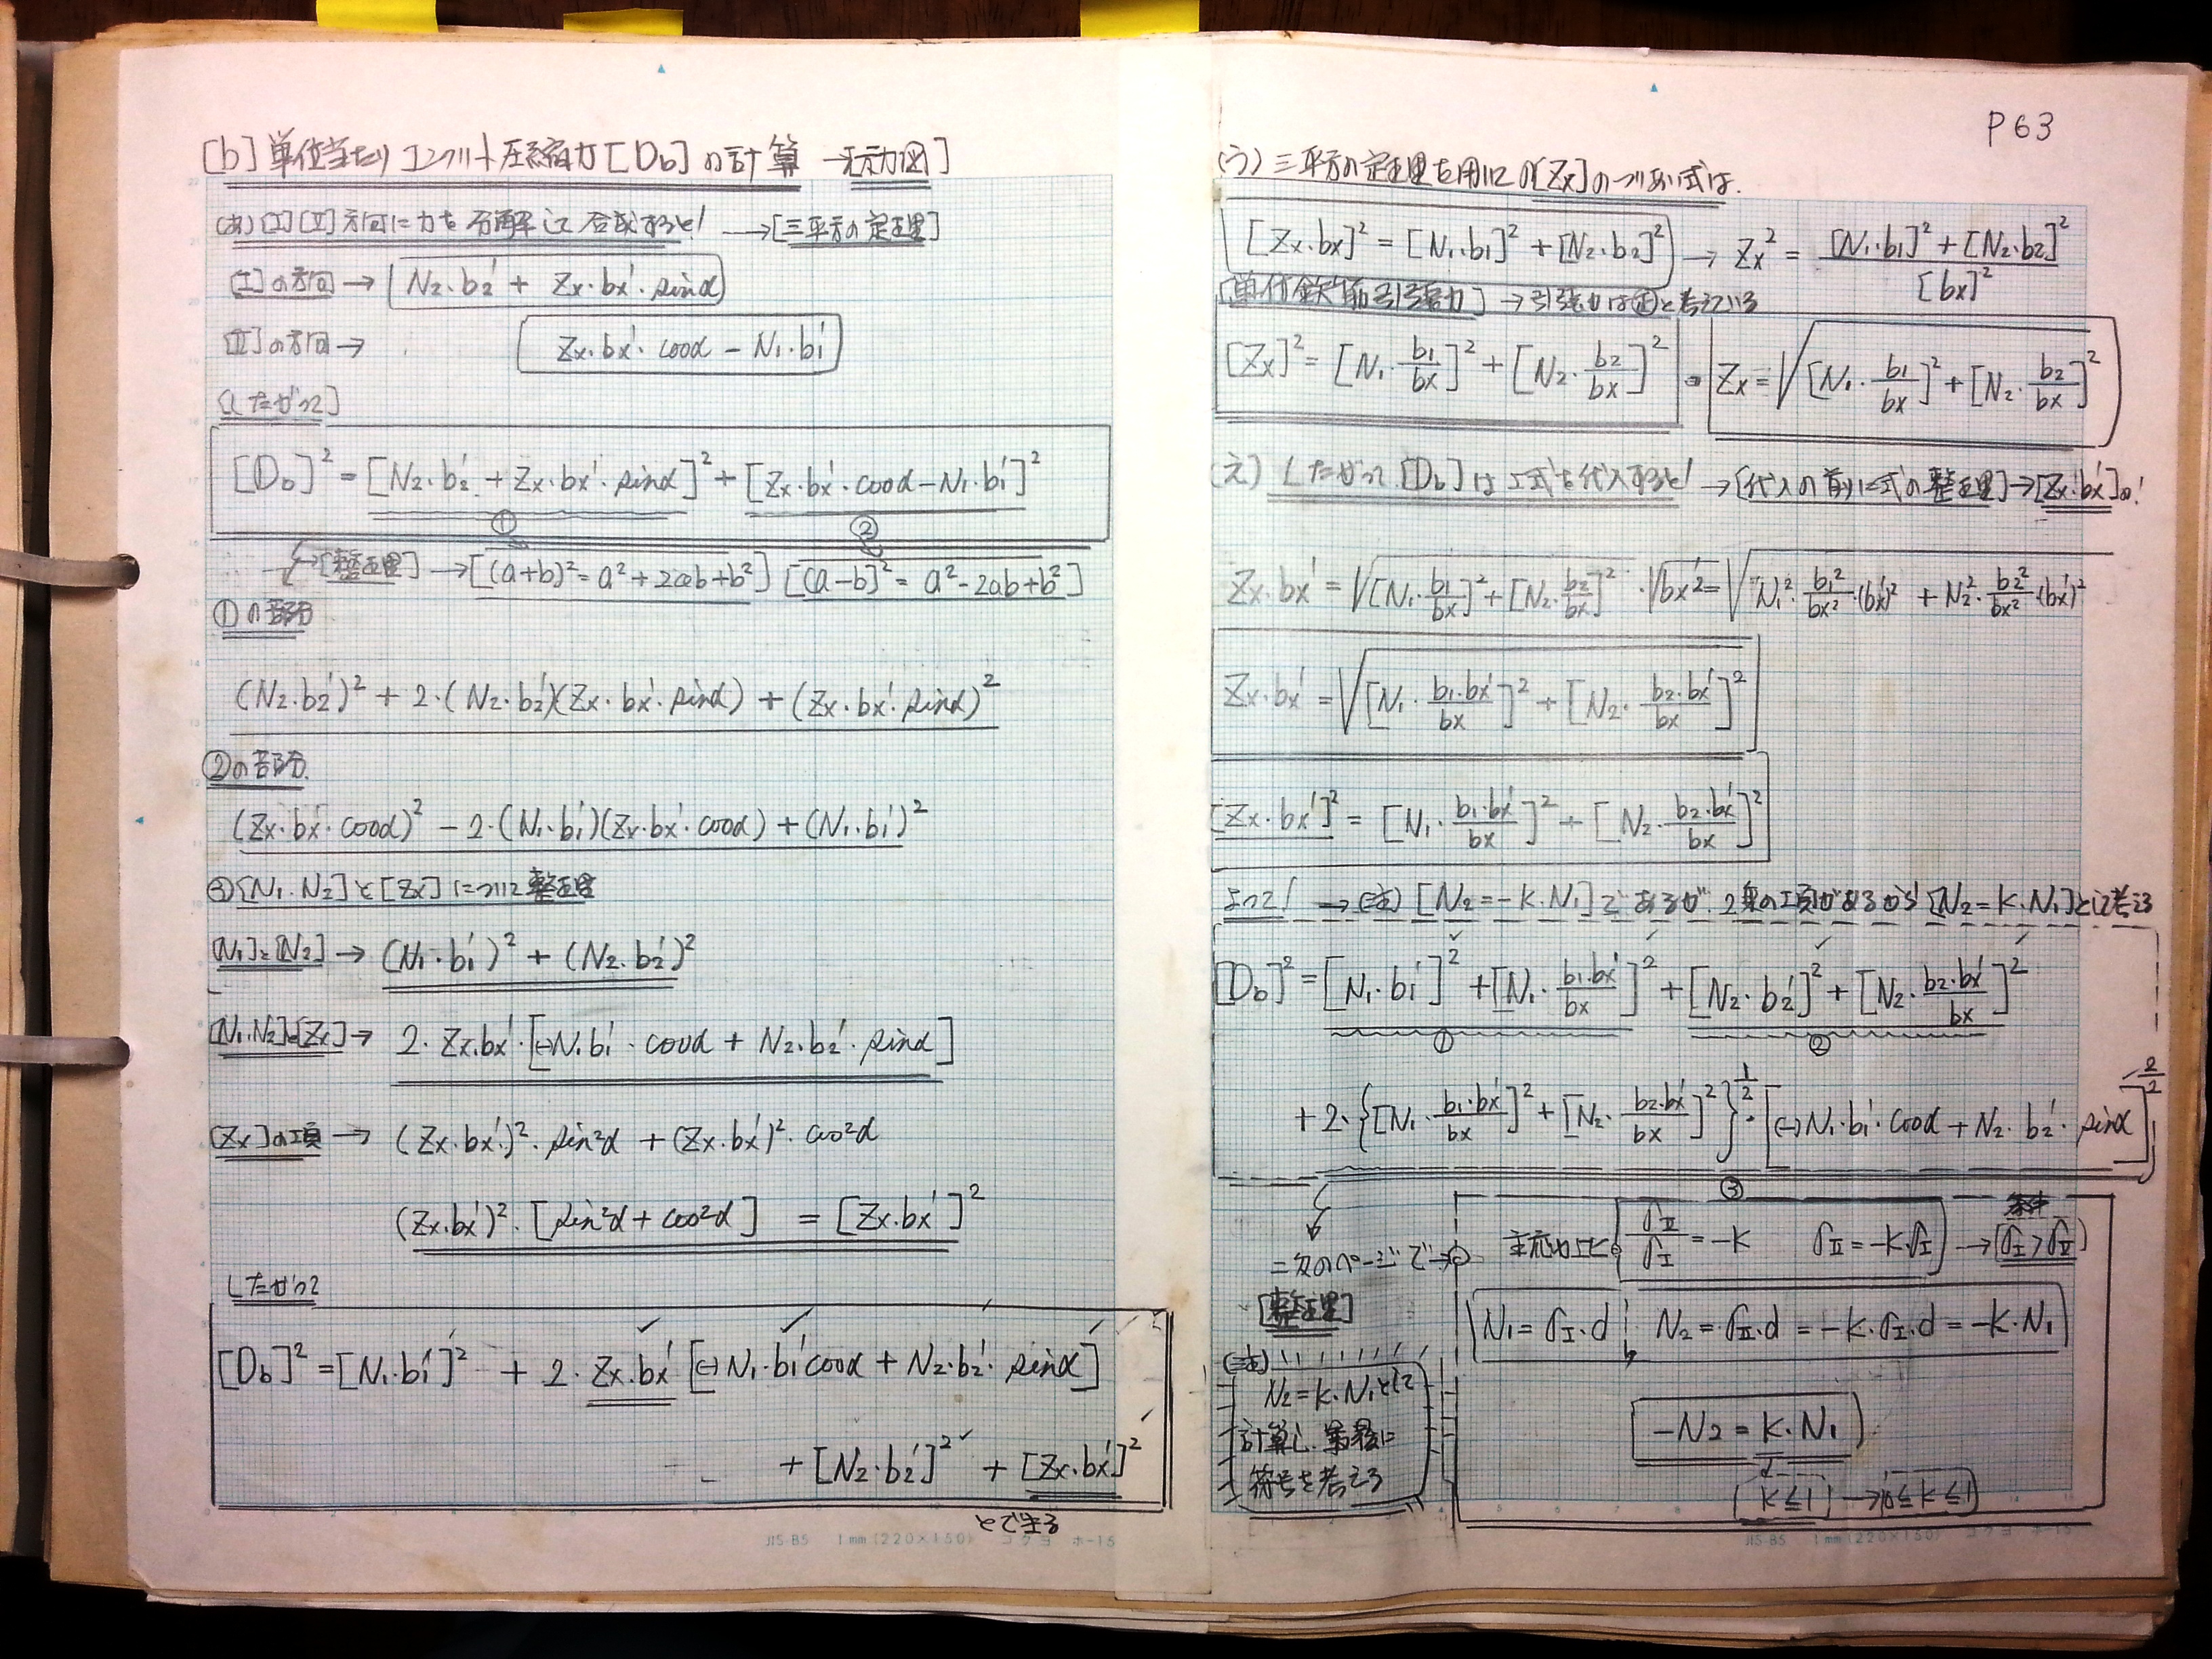 [b] 単位当たりコンクリート圧縮力 [Db] の計算 →示力図]
(あ) [I] [II] 方向に力を分解して合成すると! → [三平方の定理]
[I] の方向 → N2・b2' + Zx・bx'・sinα
[II] の方向 → Zx・bx'・cosα − N1・b1'
[したがって]
[Db]² = [N2・b2' + Zx・bx'・sinα]² + [Zx・bx'・cosα − N1・b1']²
① ②
→ [整理] → [(a+b)² = a² + 2ab + b²] [(a−b)² = a² − 2ab + b²]
①の部分
(N2・b2')² + 2・(N2・b2')(Zx・bx'・sinα) + (Zx・bx'・sinα)²
②の部分
(Zx・bx'・cosα)² − 2・(N1・b1')(Zx・bx'・cosα) + (N1・b1')²
③ [N1・N2] と [Zx] について整理
[N1]と[N2] → (N1・b1')² + (N2・b2')²
[N1・N2]と[Zx] → 2・Zx・bx'・[(−)N1・b1'・cosα + N2・b2'・sinα]
[Zx]の項 → (Zx・bx')²・sin²α + (Zx・bx')²・cos²α
(Zx・bx')²・[sin²α + cos²α] = [Zx・bx']²
したがって
[Db]² = [N1・b1']² + 2・Zx・bx' [(−)N1・b1' cosα + N2・b2'・sinα]
+ [N2・b2']² + [Zx・bx']²
とできる
JIS-B5 1mm (220×150) コクヨ ホ-15
P63
(う) 三平方の定理を用いての [Zx] のつりあい式は.
[Zx・bx]² = [N1・b1]² + [N2・b2]² → Zx² = [N1・b1]² + [N2・b2]² / [bx]²
[単位鉄筋引張力] → 引張力は正と考えている
[Zx]² = [N1・b1/bx]² + [N2・b2/bx]² Zx = √[N1・b1/bx]² + [N2・b2/bx]²
(え) したがって [Db] は上式を代入すると! → [代入の前に式の整理] → [Zx・bx'] の!
Zx・bx' = √[N1・b1/bx]² + [N2・b2/bx]² ・√bx'² = √N1²・b1²/bx²・(bx')² + N2²・b2²/bx²・(bx')²
Zx・bx' = √[N1・b1・bx'/bx]² + [N2・b2・bx'/bx]²
[Zx・bx']² = [N1・b1・bx'/bx]² + [N2・b2・bx'/bx]²
よって! → (注) [N2 = −k・N1] であるが 2乗の項があるから [N2 = k・N1] として考える
[Db]² = [N1・b1']² + [N1・b1・bx'/bx]² + [N2・b2']² + [N2・b2・bx'/bx]²
① ②
+ 2・{[N1・b1・bx'/bx]² + [N2・b2・bx'/bx]²}^1/2・[(−)N1・b1'・cosα + N2・b2'・sinα]^2/2
③
二次のページで→
[整理]
(注)
N2 = k・N1として
計算し、最後に
符号を考える
主応力比 σII/σI = −k σII = −k・σI → [σI > σII]
条件
N1 = σI・d N2 = σII・d = −k・σI・d = −k・N1
−N2 = k・N1
[k ≦ 1] → [0 ≦ k ≦ 1]
JIS-B5 1mm (220×150) コクヨ ホ-15